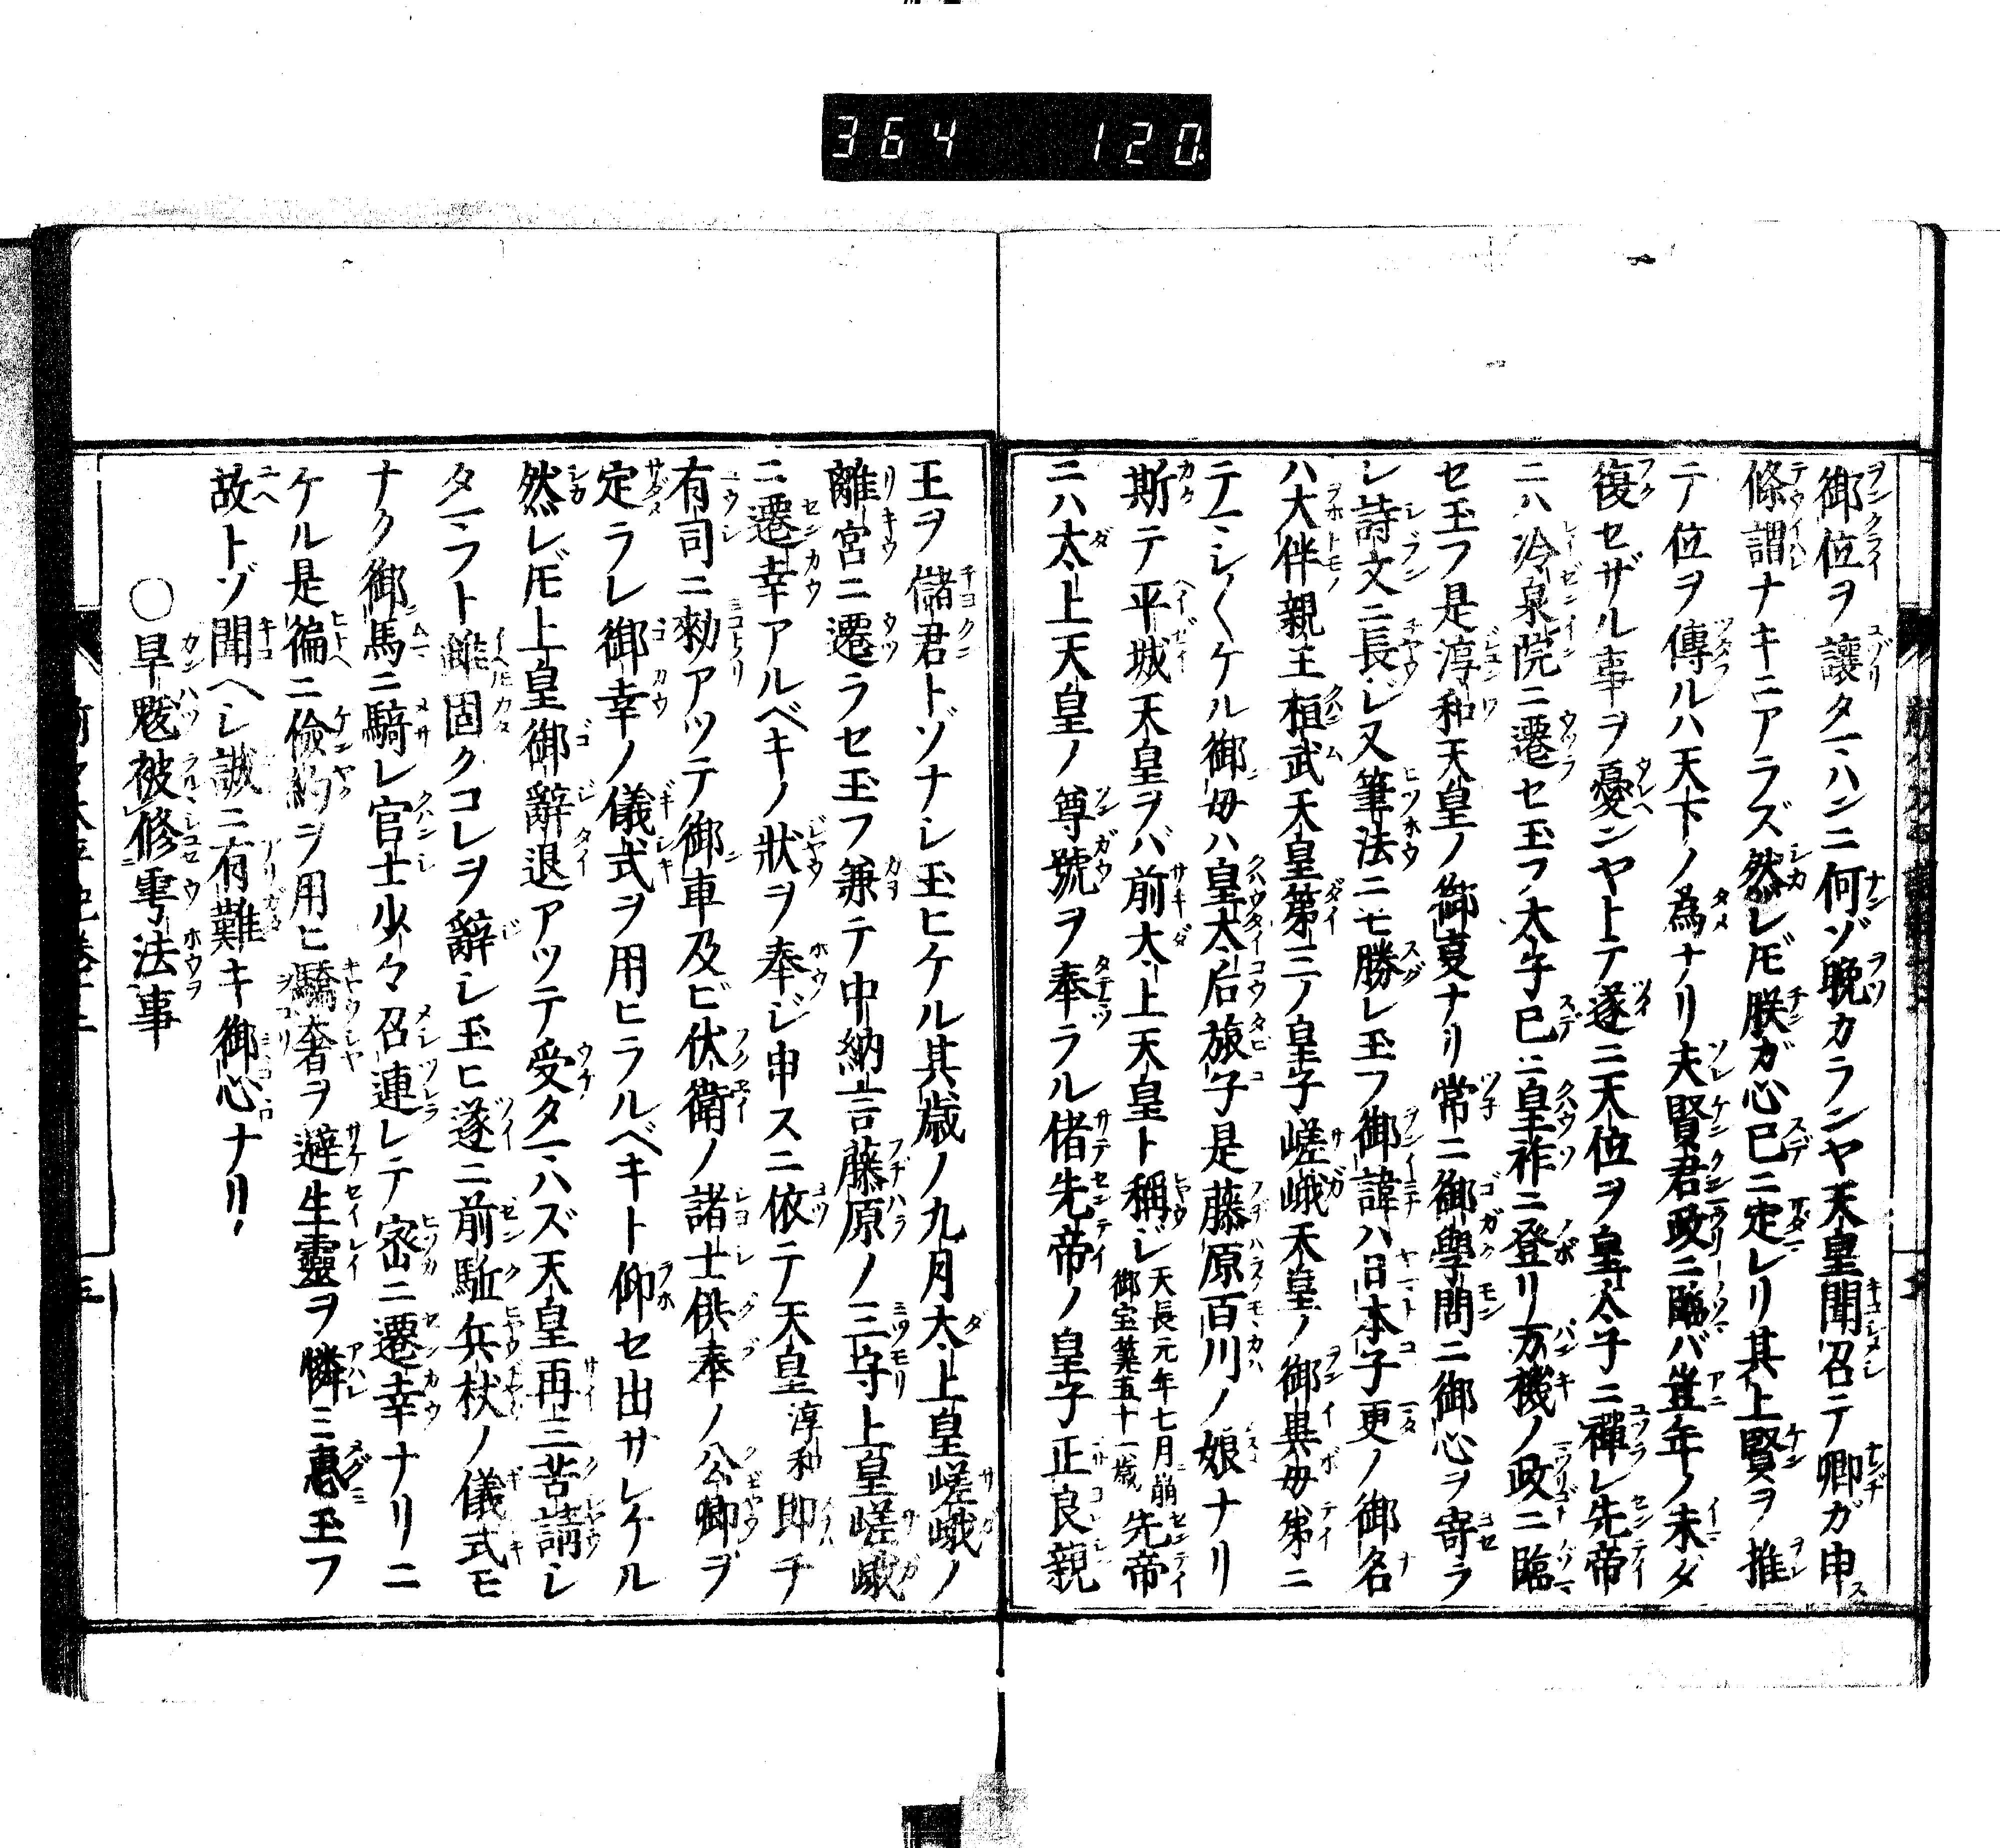 364 120
御位ヲ讓タマハンニ何ゾ晩カランヤ天皇聞召テ卿ガ申
條謂ナキニアラズ然レ𪜈朕ガ心已ニ定レリ其上賢ヲ推
テ位ヲ傳ルハ天下ノ為ナリ夫賢君政ニ臨バ豈年ノ未ダ
復セザル事ヲ憂ンヤトテ遂ニ天位ヲ皇太子ニ禪レ先帝
ニハ冷泉院ニ遷セ玉フ太子已ニ皇祚ニ登リ万機ノ政ニ臨
セ玉フ是淳和天皇ノ御夏ナリ常ニ御學問ニ御心ヲ寄ラ
レ詩文ニ長レ又筆法ニモ勝レ玉フ御諱ハ日本子更ノ御名
ハ大伴親王桓武天皇第三ノ皇子嵯峨天皇ノ御異母第ニ
テマシ〱ケル御母ハ皇太后旅子是藤原百川ノ娘ナリ
斯テ平城天皇ヲバ前太上天皇ト稱ジ天長元年七月崩御宝筭五十一歳先帝
ニハ太上天皇ノ尊號ヲ奉ラル偖先帝ノ皇子正良親
王ヲ儲君トゾナシ玉ヒケル其歳ノ九月太上皇嵯峨ノ
離宮ニ遷ラセ玉フ兼テ中納言藤原ノ三守上皇嵯峨
ニ遷幸アルベキノ狀ヲ奉ジ申スニ依テ天皇淳和即チ
有司ニ勅アツテ御車及ビ伏衛ノ諸士供奉ノ公卿ヲ
定ラレ御幸ノ儀式ヲ用ヒラルベキト仰セ出サレケル
然レ𪜈上皇御辭退アツテ受タマハズ天皇再三苦請シ
タマフト雖固クコレヲ辭シ玉ヒ遂ニ前駈兵杖ノ儀式モ
ナク御馬ニ騎レ官士少々召連レテ密ニ遷幸ナリニ
ケル是徧ニ儉約ヲ用ヒ驕奢ヲ避生靈ヲ憐ミ惠玉フ
故トゾ聞ヘシ誠ニ有難キ御心ナリ
○旱魃被修雩法事